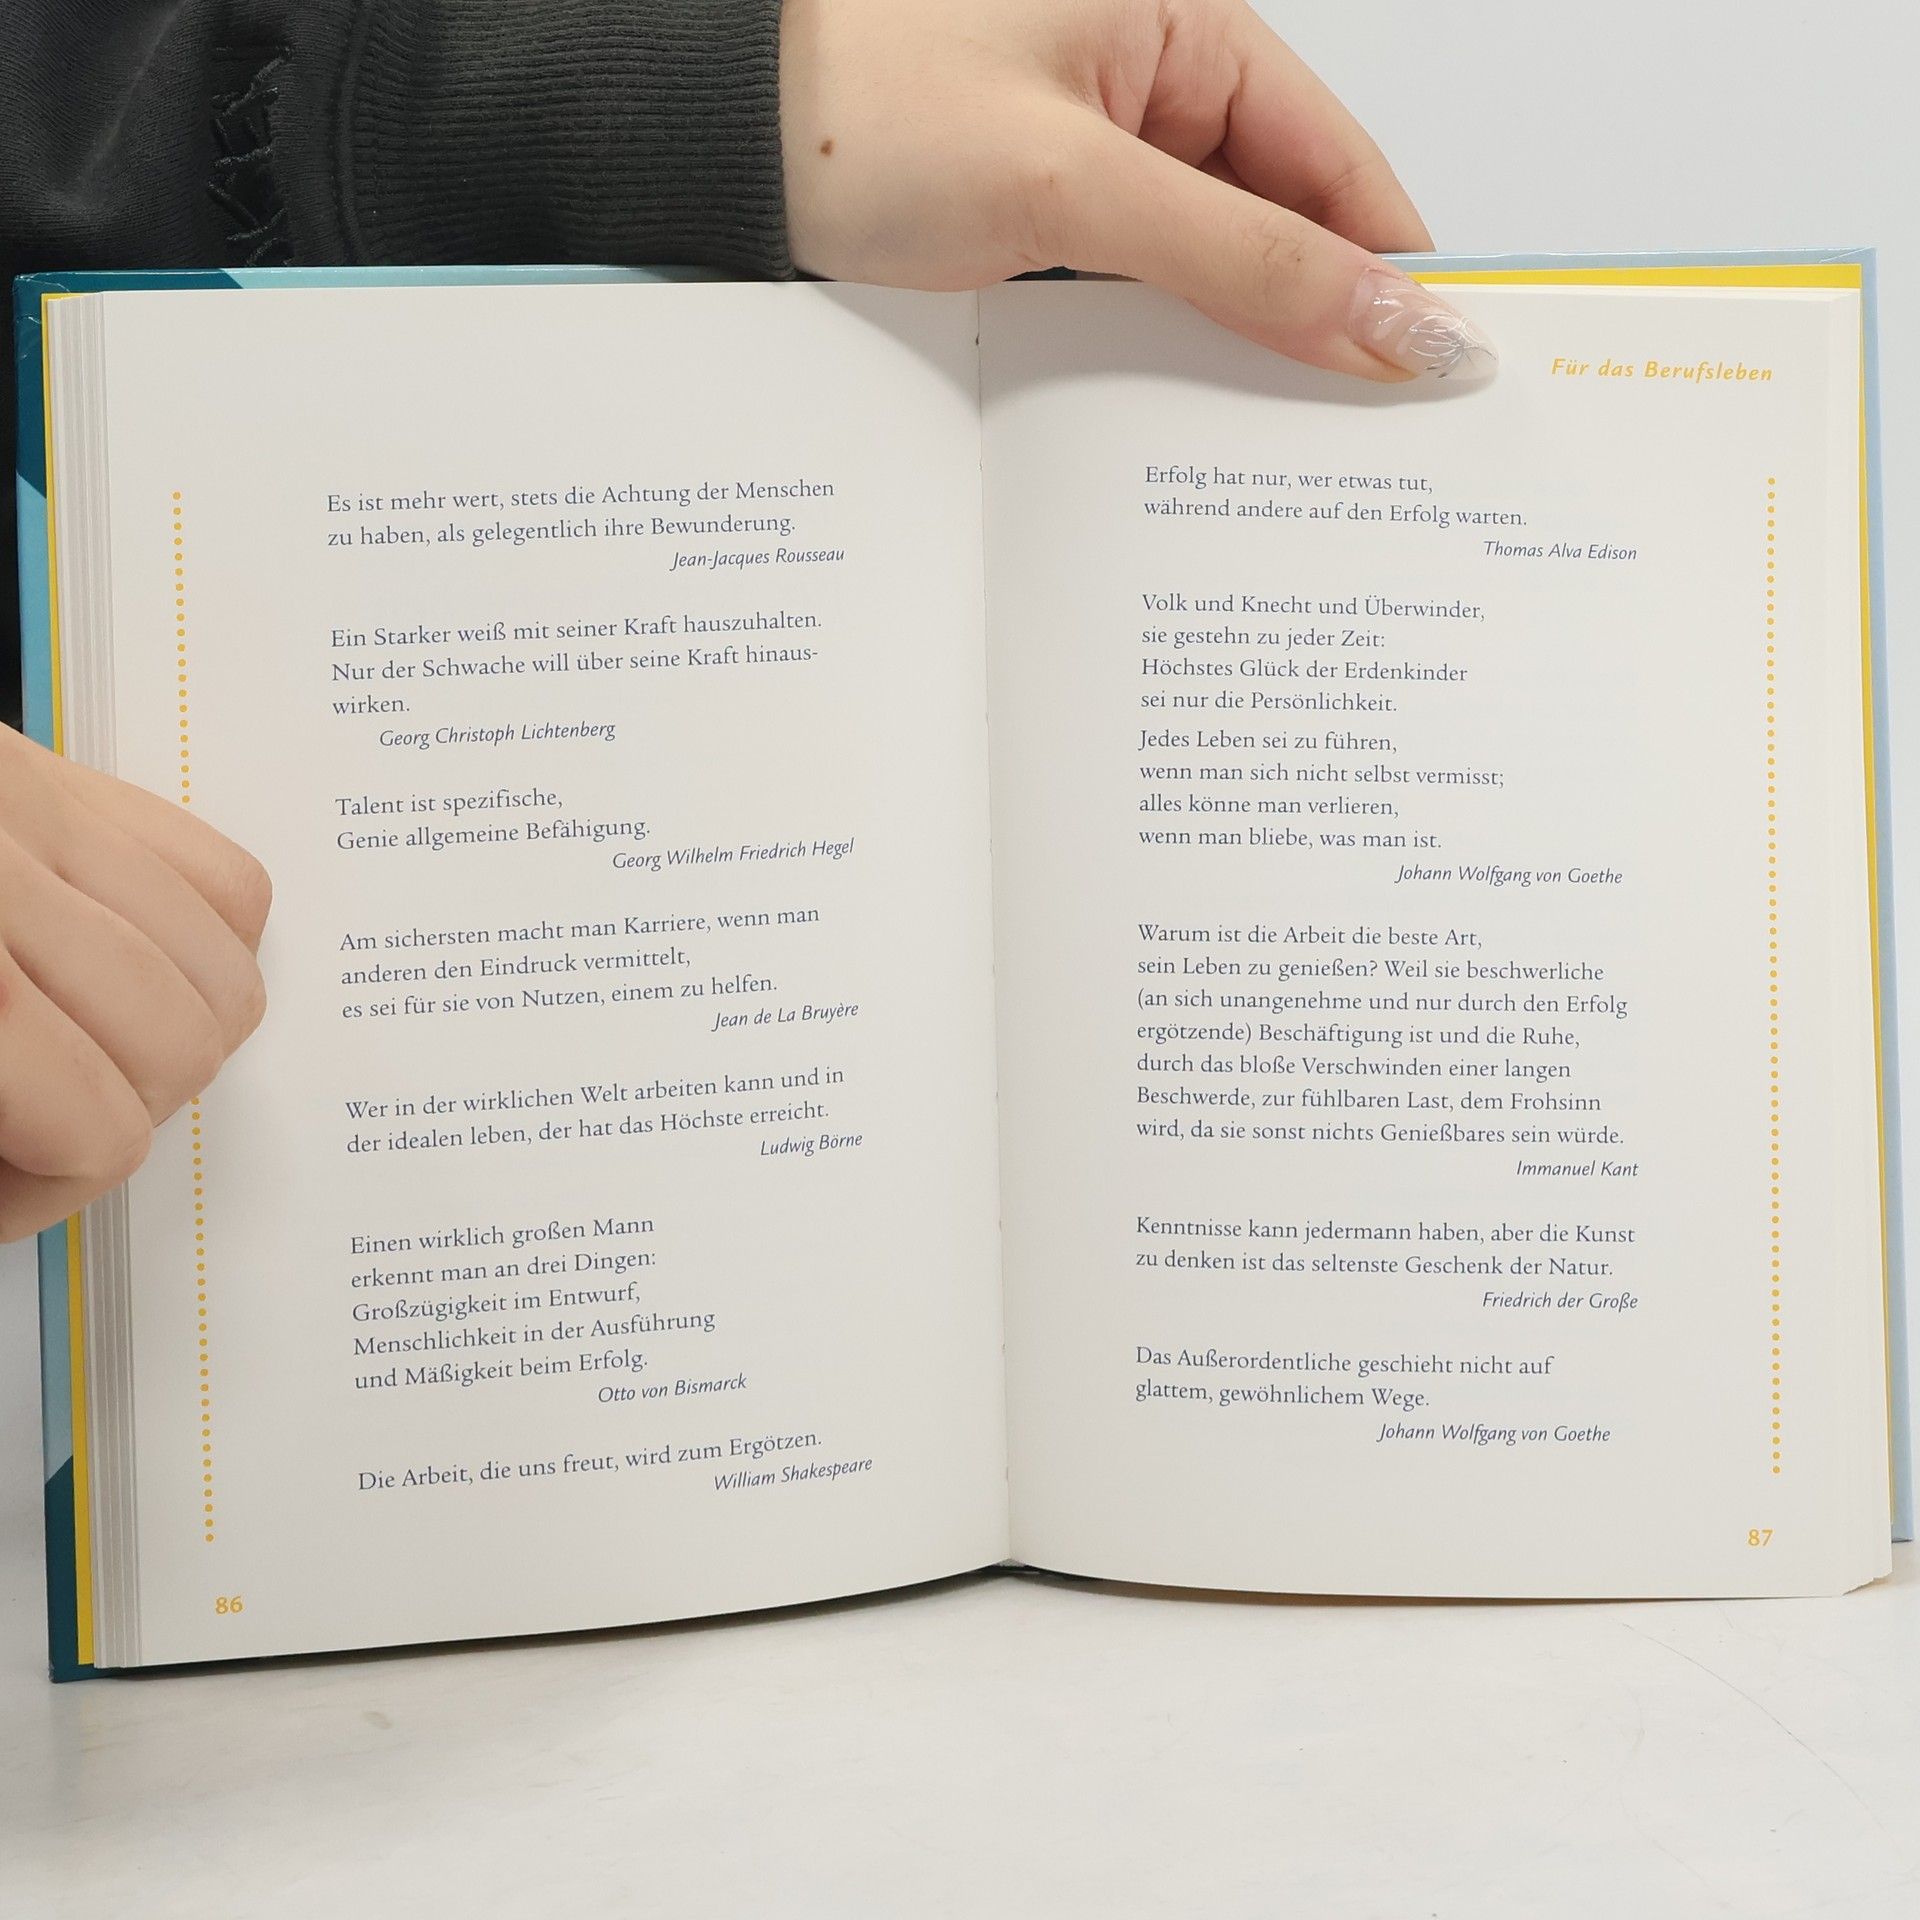 Es ist mehr wert, stets die Achtung der Menschen
zu haben, als gelegentlich ihre Bewunderung.
Jean-Jacques Rousseau
Ein Starker weiß mit seiner Kraft hauszuhalten.
Nur der Schwache will über seine Kraft hinaus-
wirken.
Georg Christoph Lichtenberg
Talent ist spezifische,
Genie allgemeine Befähigung.
Georg Wilhelm Friedrich Hegel
Am sichersten macht man Karriere, wenn man
anderen den Eindruck vermittelt,
es sei für sie von Nutzen, einem zu helfen.
Jean de La Bruyère
Wer in der wirklichen Welt arbeiten kann und in
der idealen leben, der hat das Höchste erreicht.
Ludwig Börne
Einen wirklich großen Mann
erkennt man an drei Dingen:
Großzügigkeit im Entwurf,
Menschlichkeit in der Ausführung
und Mäßigkeit beim Erfolg.
Otto von Bismarck
Die Arbeit, die uns freut, wird zum Ergötzen.
William Shakespeare
86
Für das Berufsleben
Erfolg hat nur, wer etwas tut,
während andere auf den Erfolg warten.
Thomas Alva Edison
Volk und Knecht und Überwinder,
sie gestehn zu jeder Zeit:
Höchstes Glück der Erdenkinder
sei nur die Persönlichkeit.
Jedes Leben sei zu führen,
wenn man sich nicht selbst vermisst;
alles könne man verlieren,
wenn man bliebe, was man ist.
Johann Wolfgang von Goethe
Warum ist die Arbeit die beste Art,
sein Leben zu genießen? Weil sie beschwerliche
(an sich unangenehme und nur durch den Erfolg
ergötzende) Beschäftigung ist und die Ruhe,
durch das bloße Verschwinden einer langen
Beschwerde, zur fühlbaren Last, dem Frohsinn
wird, da sie sonst nichts Genießbares sein würde.
Immanuel Kant
Kenntnisse kann jedermann haben, aber die Kunst
zu denken ist das seltenste Geschenk der Natur.
Friedrich der Große
Das Außerordentliche geschieht nicht auf
glattem, gewöhnlichem Wege.
Johann Wolfgang von Goethe
87